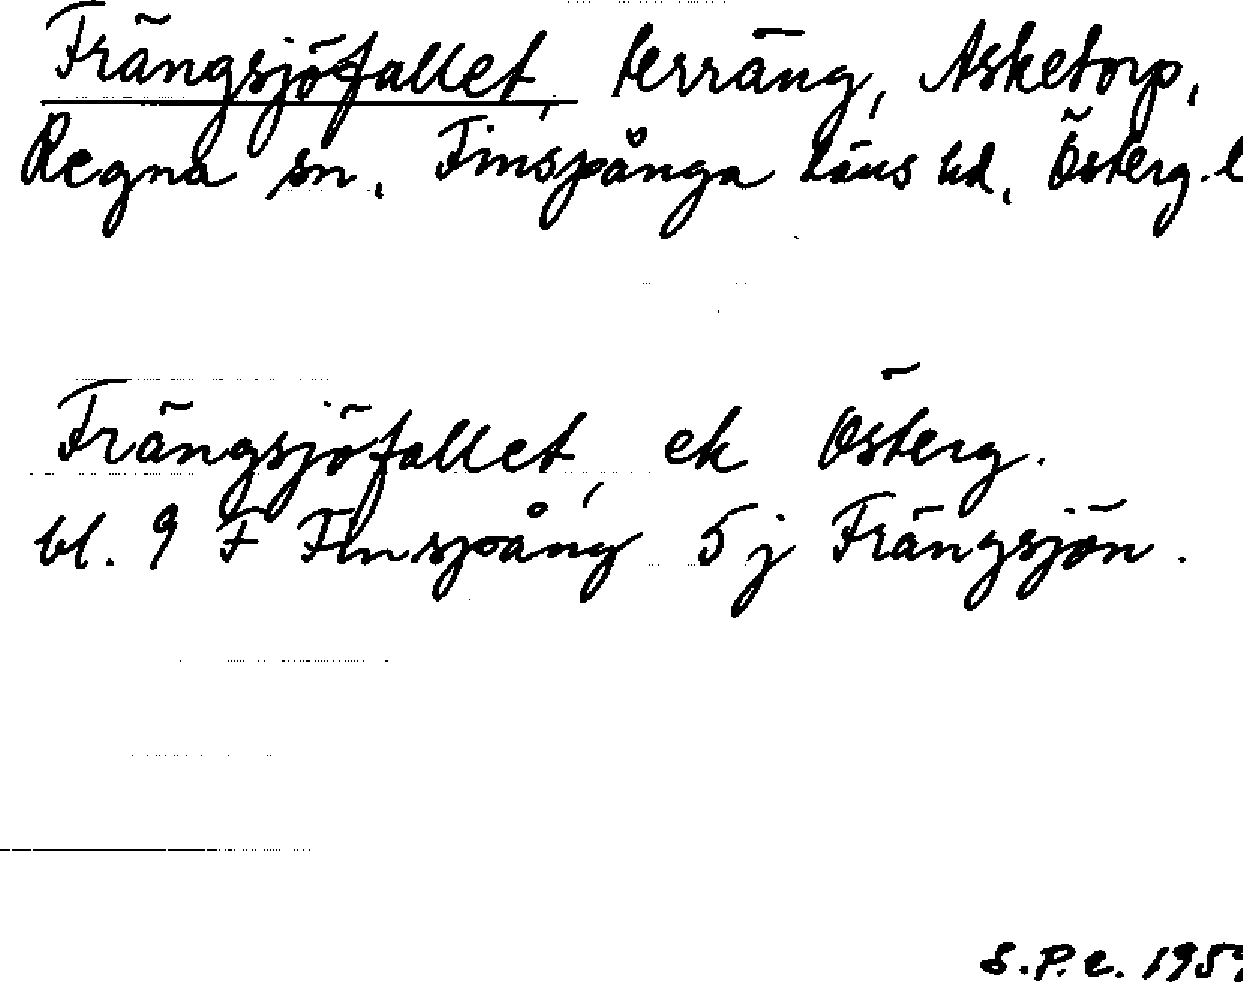 Frängsjöfallet, terräng, Asketorp,
Regna sn, Finspånga läns hd, Österg. l
Frängsjöfallet, ek Österg.
bl. 9 F Finspång 5 j Frängsjön.
S.P.e.